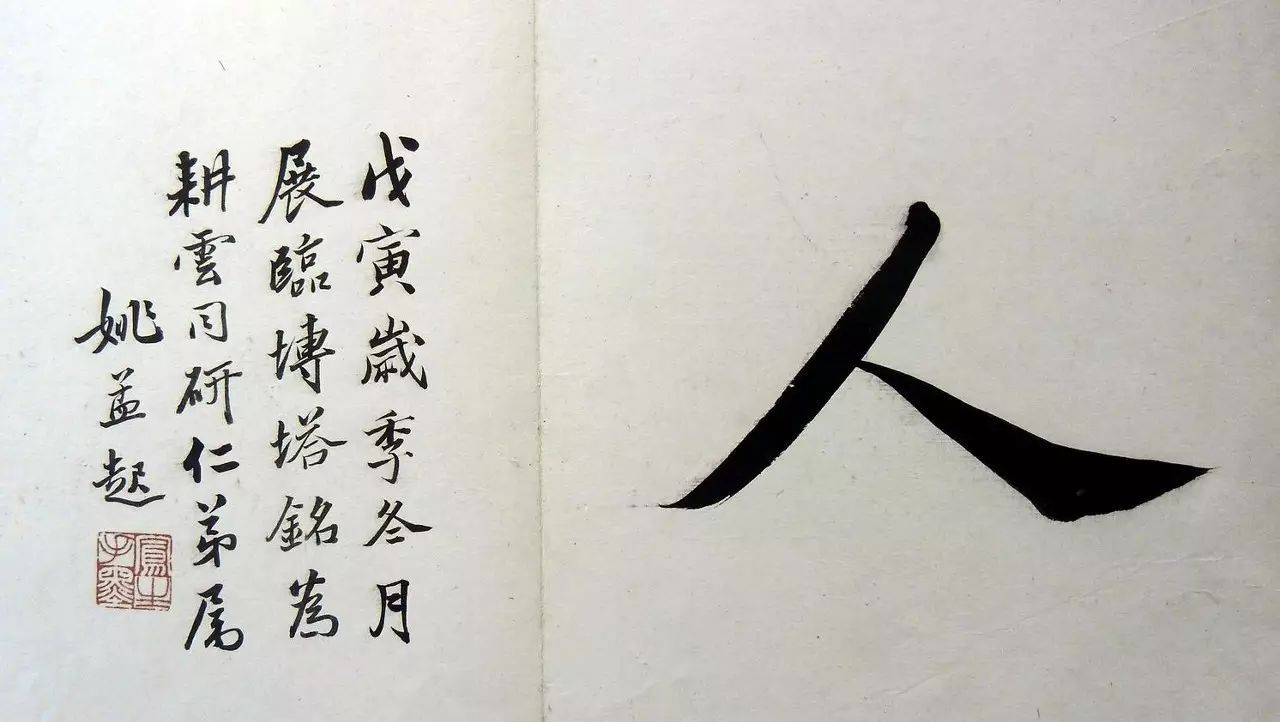 人
戊寅歲季冬月
展臨塼塔銘為
耕雲同研仁弟屬
姚孟起
鳳生手墨